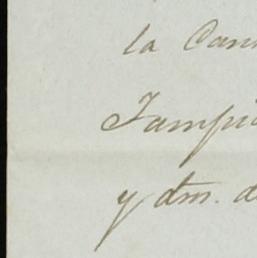 la Cam
Tampic
y dm. d